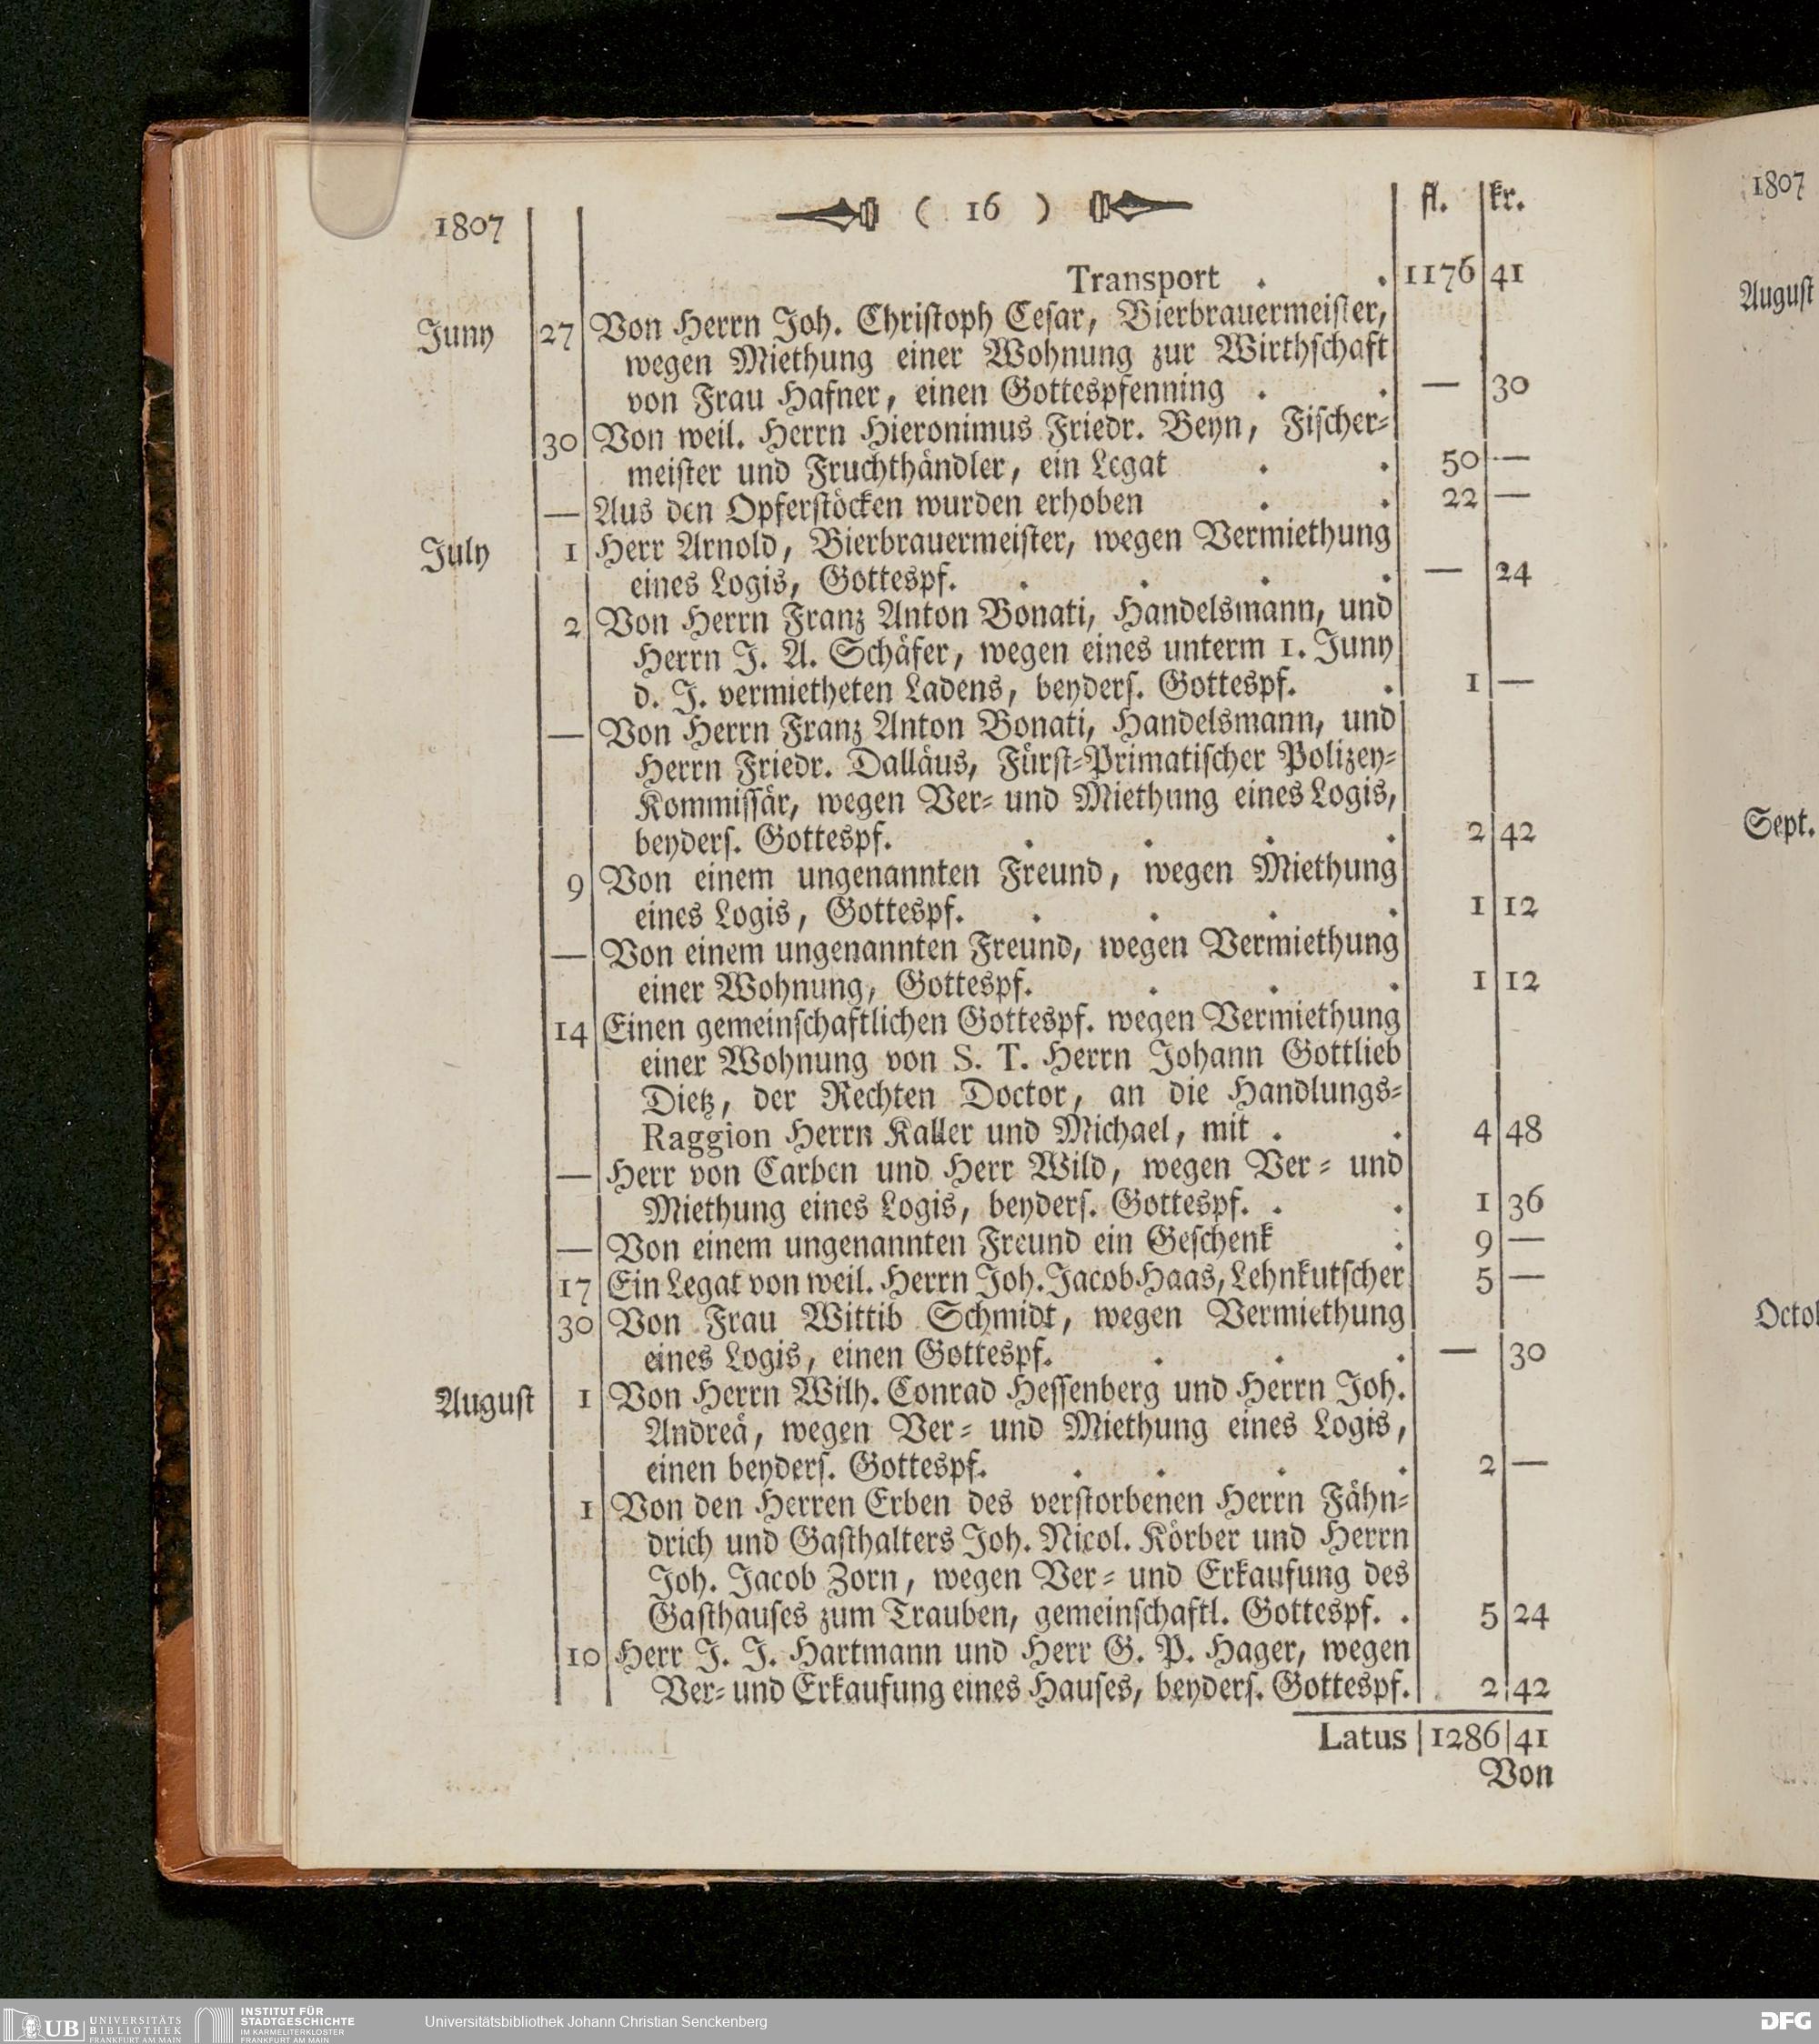 1807 ( 16 ) fl. kr.
Transport . . 1176 41
Juny 27 Von Herrn Joh. Christoph Cesar, Bierbrauermeister,
wegen Miethung einer Wohnung zur Wirthschaft
von Frau Hafner, einen Gottespfenning . . — 30
30 Von weil. Herrn Hieronimus Friedr. Beyn, Fischer-
meister und Fruchthändler, ein Legat . . 50 —
— Aus den Opferstöcken wurden erhoben . . 22 —
July 1 Herr Arnold, Bierbrauermeister, wegen Vermiethung
eines Logis, Gottespf. . . . . — 24
2 Von Herrn Franz Anton Bonati, Handelsmann, und
Herrn J. A. Schäfer, wegen eines unterm 1. Juny
d. J. vermietheten Ladens, beyders. Gottespf. . 1 —
— Von Herrn Franz Anton Bonati, Handelsmann, und
Herrn Friedr. Dalläus, Fürst-Primatischer Polizey-
Kommissär, wegen Ver- und Miethung eines Logis,
beyders. Gottespf. . . . . 2 42
9 Von einem ungenannten Freund, wegen Miethung
eines Logis, Gottespf. . . . . 1 12
— Von einem ungenannten Freund, wegen Vermiethung
einer Wohnung, Gottespf. . . . 1 12
14 Einen gemeinschaftlichen Gottespf. wegen Vermiethung
einer Wohnung von S. T. Herrn Johann Gottlieb
Dietz, der Rechten Doctor, an die Handlungs-
Raggion Herrn Kaller und Michael, mit . . 4 48
— Herr von Carben und Herr Wild, wegen Ver- und
Miethung eines Logis, beyders. Gottespf. . . 1 36
— Von einem ungenannten Freund ein Geschenk . 9 —
17 Ein Legat von weil. Herrn Joh. Jacob Haas, Lehnkutscher 5 —
30 Von Frau Wittib Schmidt, wegen Vermiethung
eines Logis, einen Gottespf. . . . — 30
August 1 Von Herrn Wilh. Conrad Hessenberg und Herrn Joh.
Andreä, wegen Ver- und Miethung eines Logis,
einen beyders. Gottespf. . . . . 2 —
1 Von den Herren Erben des verstorbenen Herrn Fähn-
drich und Gasthalters Joh. Nicol. Körber und Herrn
Joh. Jacob Zorn, wegen Ver- und Erkaufung des
Gasthauses zum Trauben, gemeinschaftl. Gottespf. . 5 24
10 Herr J. J. Hartmann und Herr G. P. Hager, wegen
Ver- und Erkaufung eines Hauses, beyders. Gottespf. 2 42
Latus 1286 41
Von
1807
August
Sept.
UB UNIVERSITÄTS
BIBLIOTHEK
FRANKFURT AM MAIN
INSTITUT FÜR
STADTGESCHICHTE
IM KARMELITERKLOSTER
FRANKFURT AM MAIN
Universitätsbibliothek Johann Christian Senckenberg
DFG